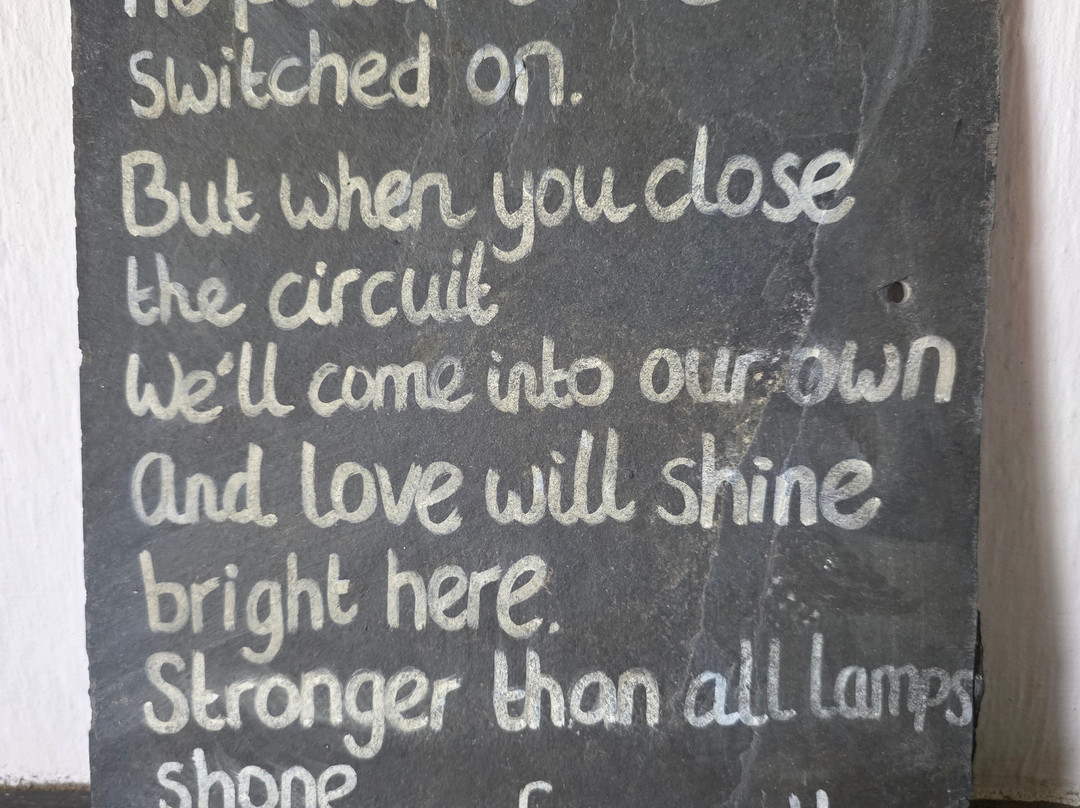 no power
switched on.
But when you close
the circuit
We'll come into our own
And love will shine
bright here.
Stronger than all lamps
shone